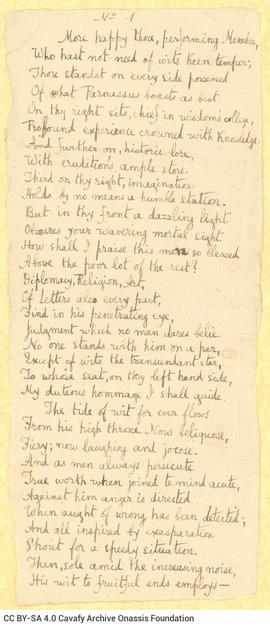 No 1
More happy thou, performing Member,
Who hast not need of wits keen temper;
Thou standst on every side possessed
Of what Parnassus boasts as best.
On thy right sits, chief in wisdom's college,
Profound experience crowned with Knowledge.
And further on, historic lore,
With erudition's ample store.
Third on thy right, imagination
Holds by no means a humble station.
But in thy front a dazzling light
Obscures your wavering mortal sight.
How shall I praise this man so blessed
Above the poor lot of the rest!
Diplomacy, Religion, Art,
Of Letters also every part,
Find in his penetrating eye,
Judgment which no man dares belie.
No one stands with him on a par,
Except of wits the transcendent star,
To whose seat, on thy left hand side,
My duteous homage I shall guide.
The tide of wit for ever flows
From his high throne. Now beliquose,
Fiery; now laughing and jocose.
And as men always persecute
True worth when joined to mind acute,
Against him anger is directed
When aught of wrong has been detected;
And all inspired by exasperation
Shout for a speedy situation.
Then, sole amid the increasing noise,
His wit to fruitful ends employs—
CC BY-SA 4.0 Cavafy Archive Onassis Foundation